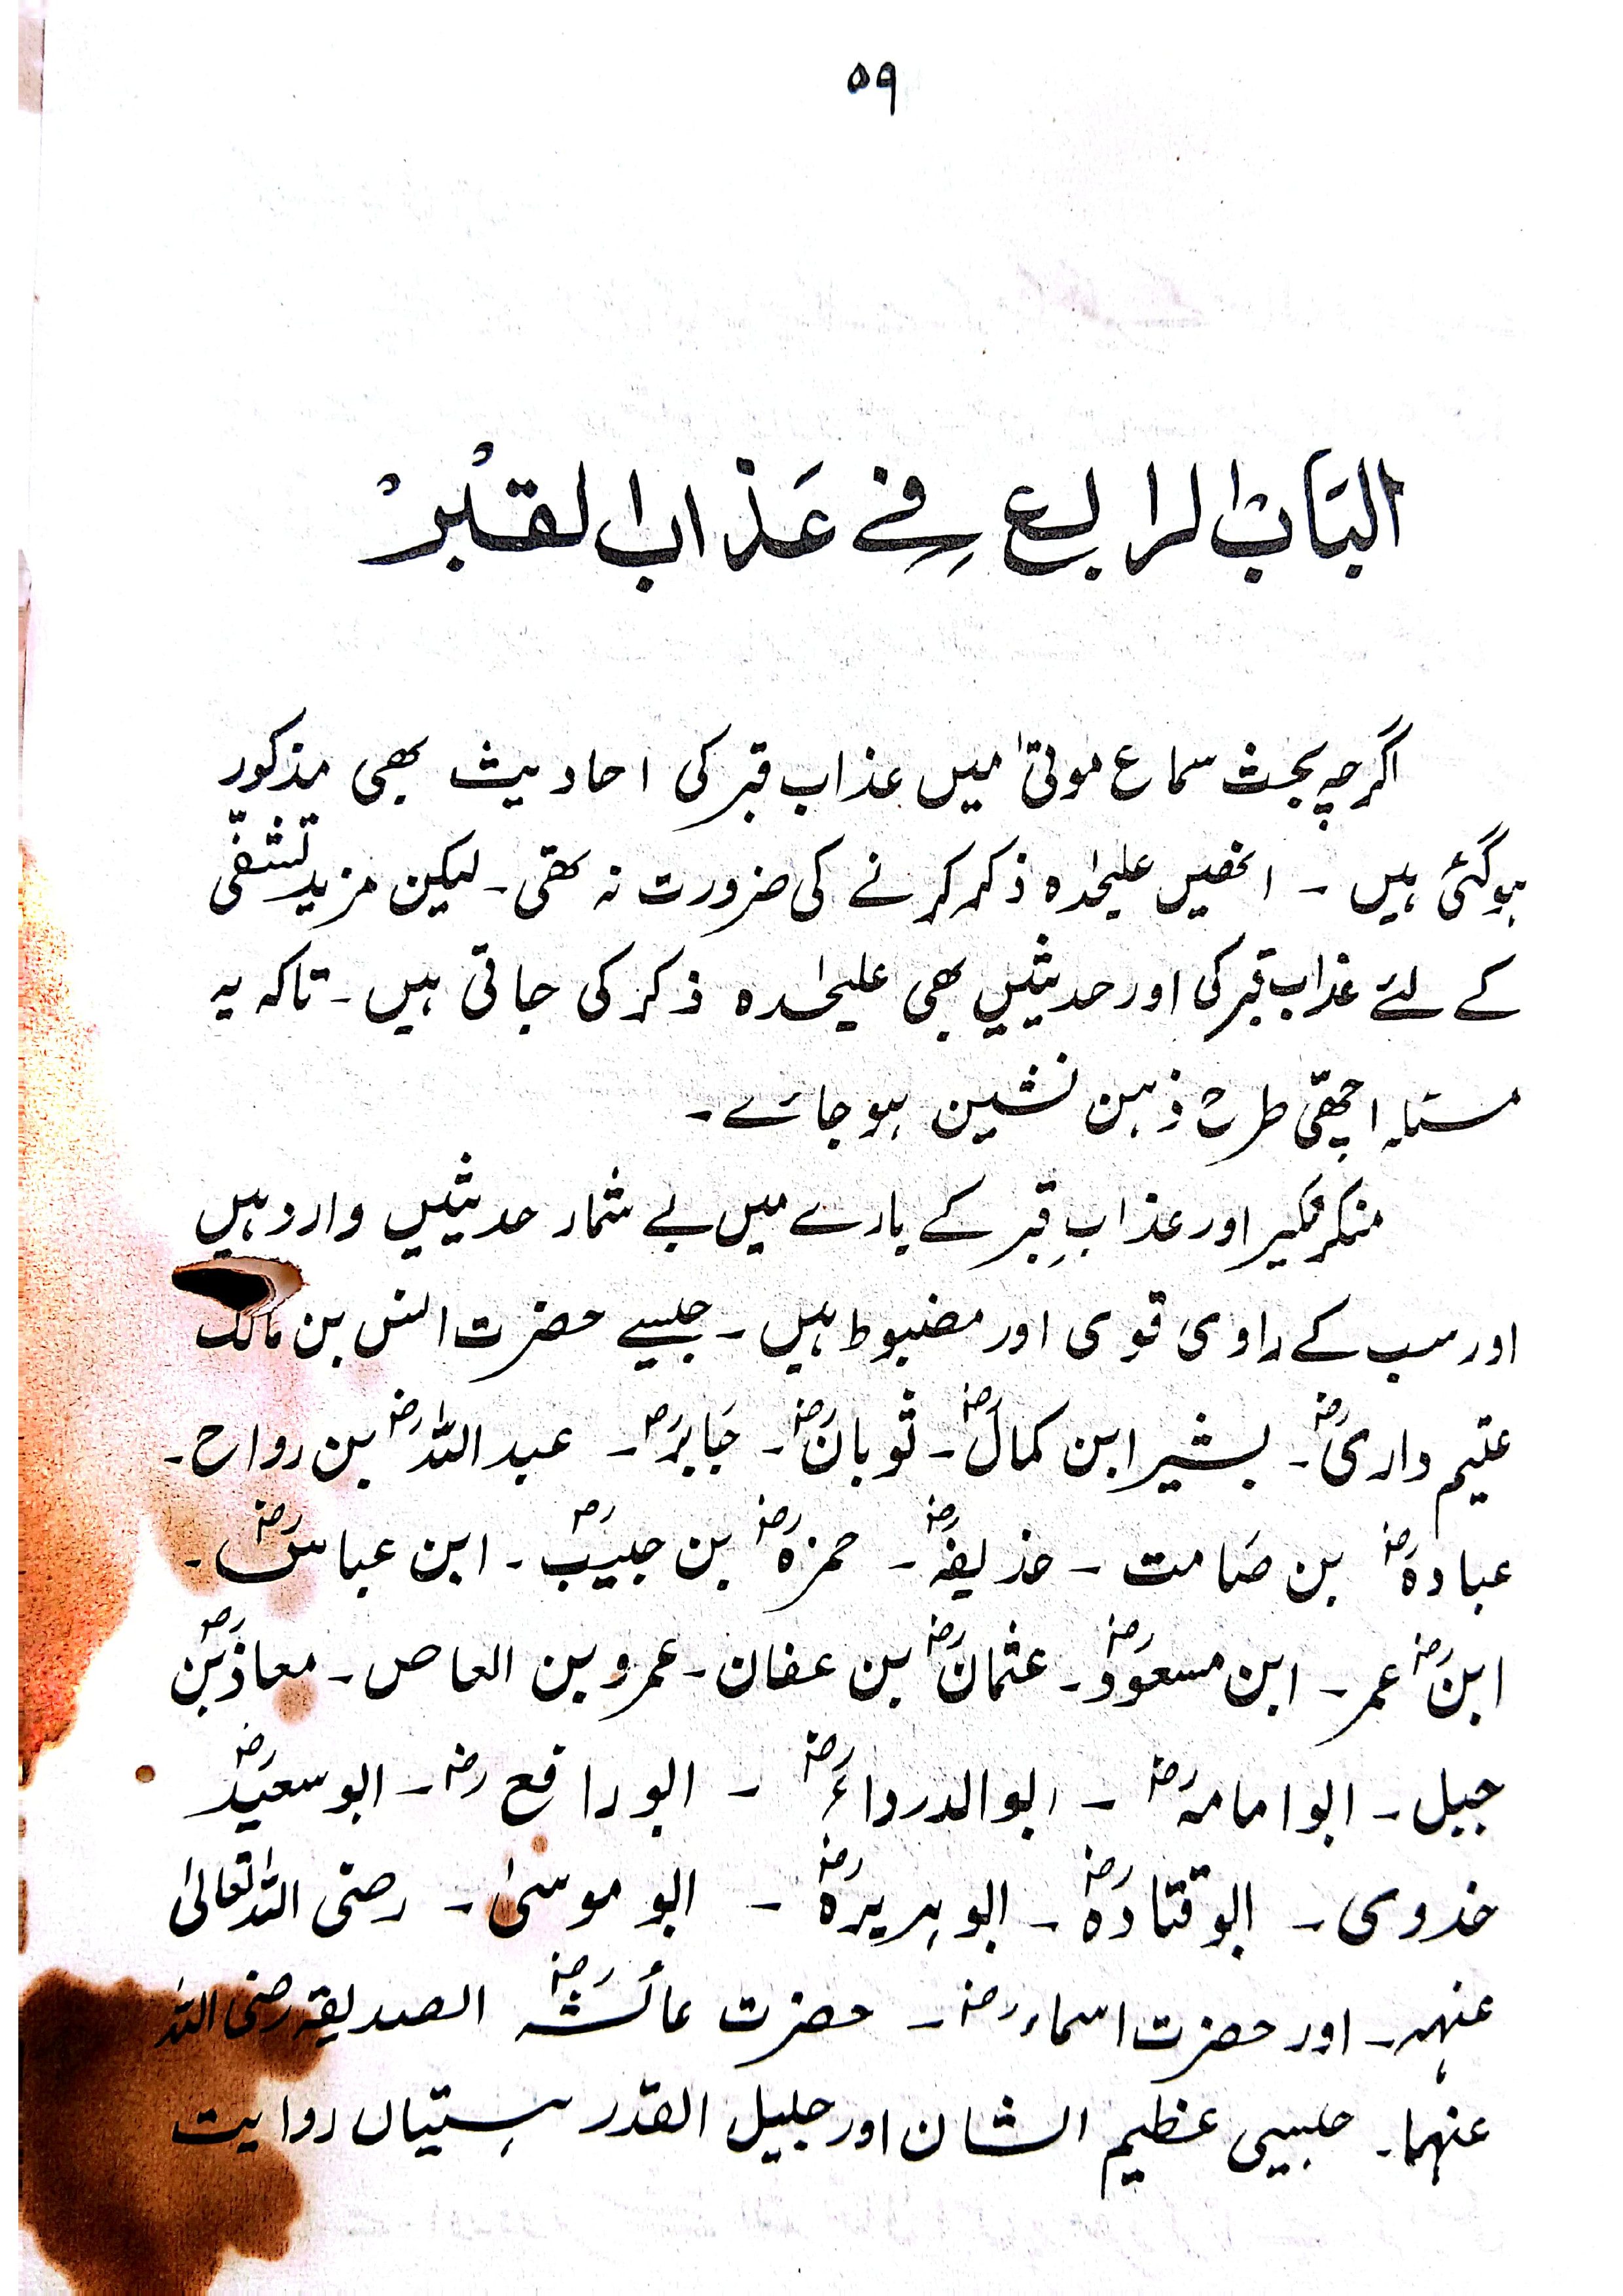 ۵۹
البَابُ الرابع فِے عَذاب القبْرْ
اگرچہ بحث سماع موتیٰ میں عذاب قبر کی احادیث بھی مذکور
ہوگئی ہیں ۔ انھیں علیحٰدہ ذکر کرنے کی ضرورت نہ تھی ۔ لیکن مزید تشفّی
کے لئے عذاب قبر کی اور حدیثیں بھی علیحٰدہ ذکر کی جاتی ہیں ۔ تاکہ یہ
مسئلہ اچھّی طرح ذہن نشین ہو جائے ۔
منکر نکیر اور عذابِ قبر کے بارے میں بے شمار حدیثیں وارد ہیں
اور سب کے راوی قوی اور مضبوط ہیں ۔ جیسے حضرت انس بن مالک
علیم داریؓ ۔ بشیر ابن کمالؓ ۔ ثوبانؓ ۔ جَابرؓ ۔ عبد اللہؓ بن رواح ۔
عبادہؓ بن صَامت ۔ حذیفہؓ ۔ حمزہؓ بن حبیبؓ ۔ ابن عباسؓ ۔
ابنؓ عمر ۔ ابن مسعودؓ ۔ عثمانؓ بن عفان ۔ عمرو بن العاص ۔ معاذؓ بن
جبل ۔ ابو امامہؓ ۔ ابو الدرداءؓ ۔ ابو رافعؓ ۔ ابو سعیدؓ
خدوی ۔ ابو قتادہؓ ۔ ابو ہریرہؓ ۔ ابو موسیٰ ۔ رضی اللہ تعالیٰ
عنہم ۔ اور حضرت اسماءؓ ۔ حضرت عائشہؓ الصدیقہ رضی اللہ
عنہما ۔ جیسی عظیم الشان اور جلیل القدر ہستیاں روایت